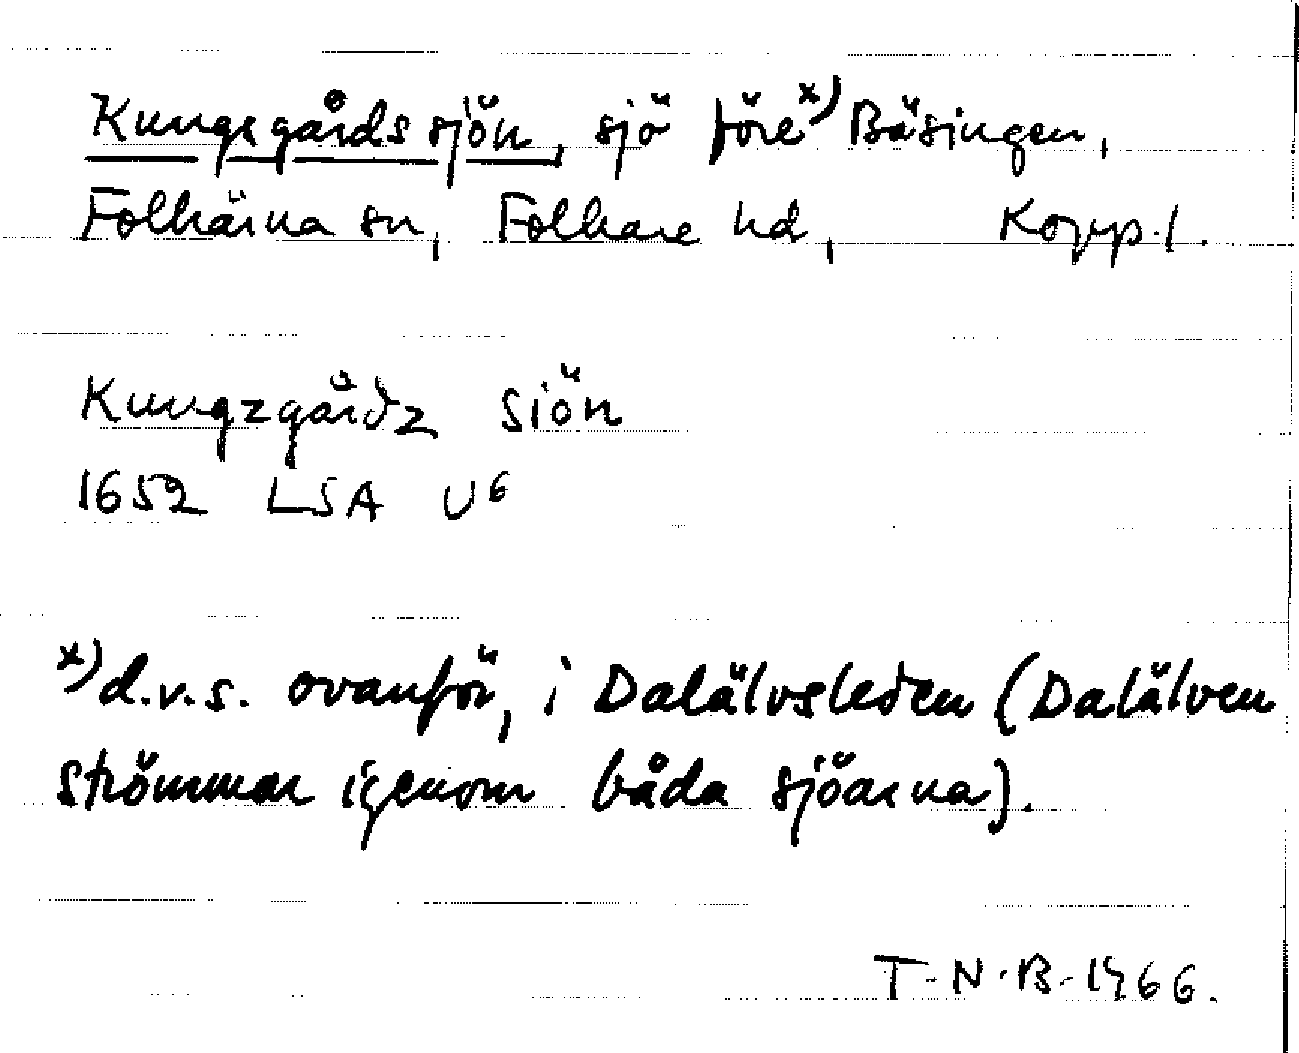 Kungsgårdssjön, sjö före x) Bäsingen,
Folkärna sn, Folkare hd, Kopp. l.
Kungzgårdz Siön
1652 LSA U6
x) d.v.s. ovanför, i Dalälvsleden (Dalälven
strömmar igenom båda sjöarna).
T.N.B. 1966.